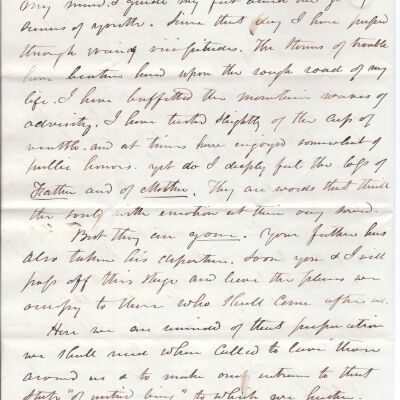 my mind. I guide my
scenes of youth. Since that day I have passed
through many vicissitudes. The storms of trouble
have beaten hard upon the rough road of my
life. I have buffetted the mountain waves of
adversity. I have tasted slightly of the cup of
wealth. and at times have enjoyed somewhat of
public honors. yet do I deeply feel the loss of
Father and of Mother. They are words that thrill
the soul with emotion at their very sound.
But they are gone. Your father has
also taken his departure. Soon you & I will
pass off this stage and leave the places we
occupy to those who shall come after us.
Here we are reminded of that preparation
we shall need when called to leave those
around us & to make our entrance to that
State " to which we hasten.